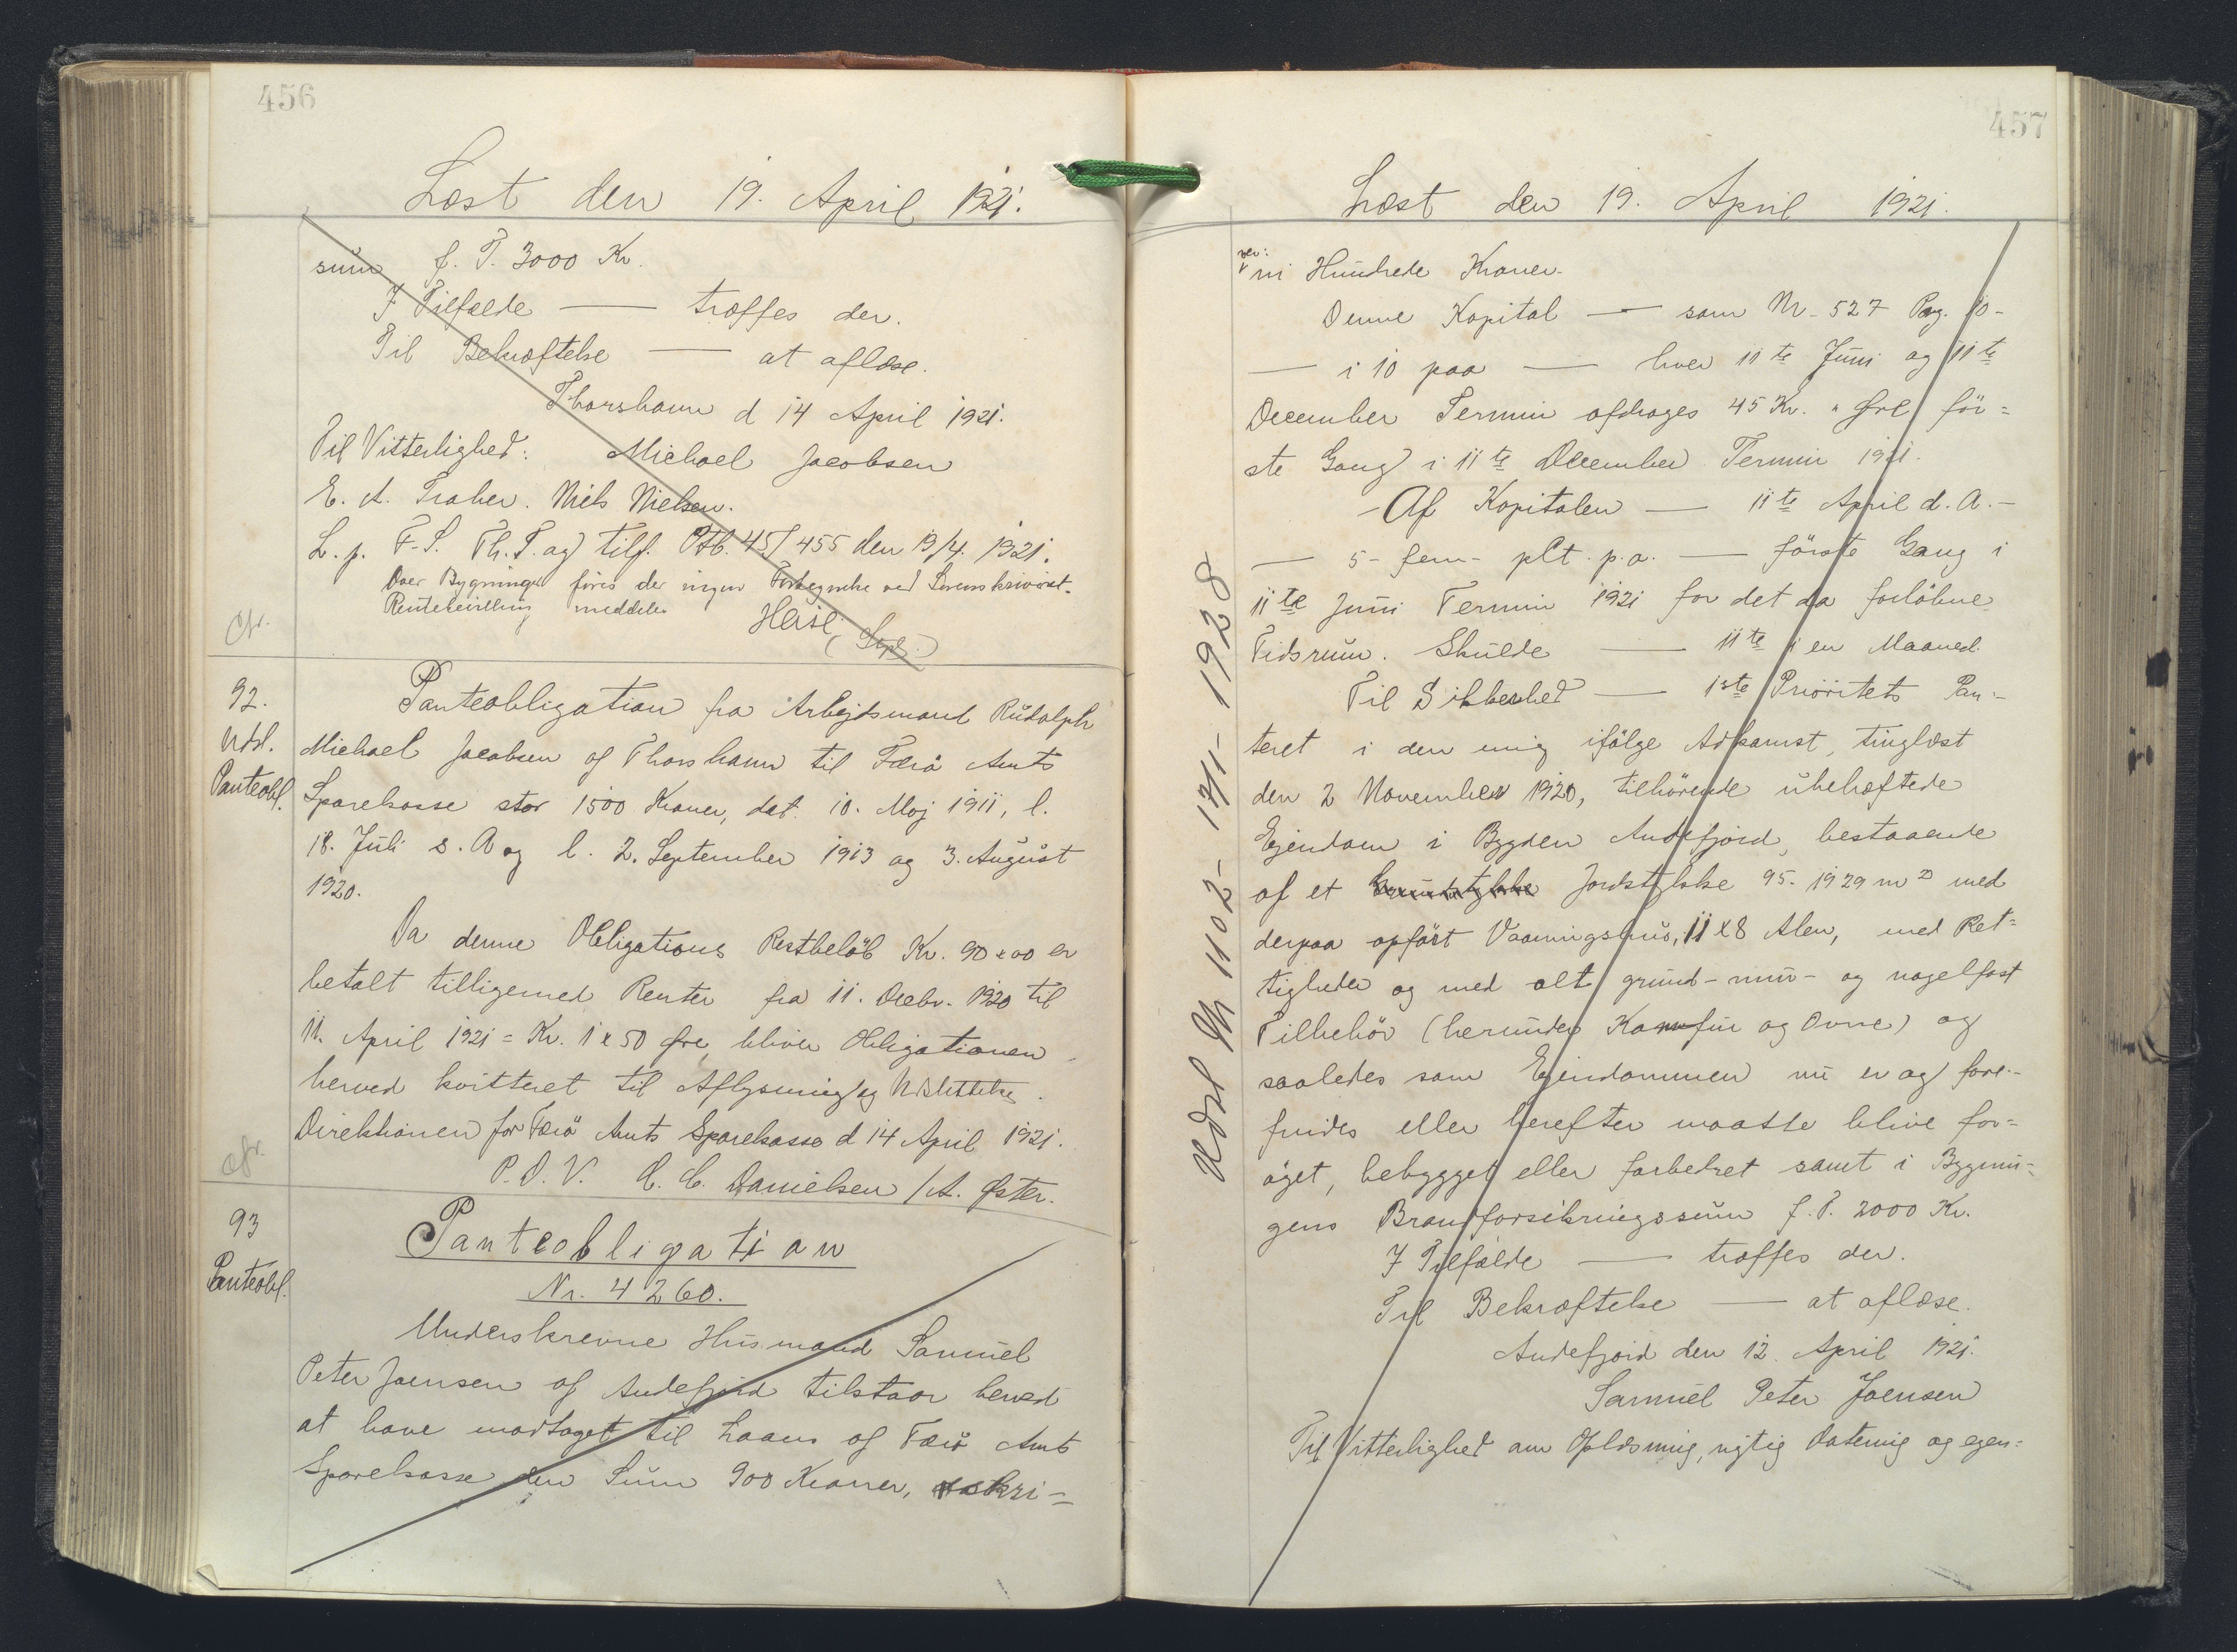 456
Læst den 19. April 1921.
sum f. T. 3000 Kr.
I Tilfælde — træffes der.
Til Bekræftelse — at aflæse.
Thorshavn d 14 April 1921.
Til Vitterlighed: Michael Jacobsen
E. A. Traber. Niels Nielsen.
L. p. F.S. Th. T. og tilf. Ptb. 45/455 den 19/4. 1921.
Over Bygninger föres der ingen Fortegnelse ved Sorenskriveriet.
Rentebevilling meddeles
Heise
92.
Udsl.
Panteobl.
Panteobligation fra Arbejdsmand Rudolph
Michael Jacobsen af Thorshavn til Færö Amts
Sparekasse stor 1500 Kroner, dat. 10. Maj 1911, l.
18. Juli s. A og l. 2. September 1913 og 3. August
1920.
Da denne Obligations Restbelöb Kr. 90 x 00 er
betalt tilligemed Renter fra 11. Decbr. 1920 til
11. April 1921 = Kr. 1 x 50 Øre, bliver Obligationen
herved kvitteret til Aflysning og Udslettelse.
Direktionen for Færö Amts Sparekasse d 14 April 1921.
P. D. V. C. C. Danielsen / A. Øster.
93
Panteobl.
Panteobligation
Nr. 4260.
Underskrevne Husmand Samuel
Peter Joensen af Andefjord tilstaar herved
at have modtaget til Laans af Færö Amts
Sparekasse den Sum 900 Kroner, skri-
457
Læst den 19. April 1921.
ver:
ni Hundrede Kroner.
Denne Kapital — som Nr. 527 Pag. 10-
— i 10 paa — hver 11te Juni og 11te
December Termin afdrages 45 Kr. " Øre för=
ste Gang i 11te December Termin 1921.
Af Kapitalen — 11te April d. A. —
— 5 - fem - pCt. p. a. — förste Gang i
11te Juni Termin 1921 for det da forlöbne
Tidsrum. Skulde — 11te i en Maaned.
Til Sikkerhed — 1ste Prioritets Pan-
teret i den mig ifölge Adkomst, tinglæst
den 2 November 1920, tilhörende ubehæftede
Ejendom i Bygden Andefjord, bestaaende
af et Grundstykke Jordstykke 95. 1929 m² med
derpaa opfört Vaaningshus, 11 x 8 Alen, med Ret=
tigheder og med alt grund- mur- og nagelfast
Tilbehör (herunder Komfur og Ovne) og
saaledes som Ejendommen nu er og fore-
findes eller herefter maatte blive for=
öget, bebygget eller forbedret samt i Bygnin=
gens Brandforsikringssum f. T. 2000 Kr.
I Tilfælde — træffes der.
Til Bekræftelse — at aflæse.
Andefjord den 12. April 1921.
Samuel Peter Joensen
Til Vitterlighed om Oplæsning, rigtig Datering og egen=
Udsl
1102 - 17/1 - 1928